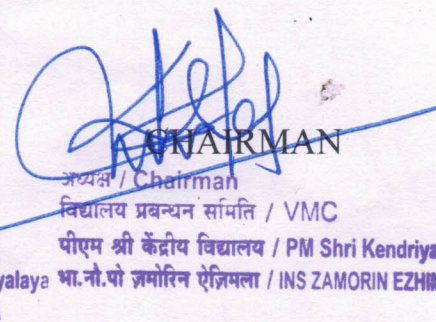 CHAIRMAN
अध्यक्ष / Chairman
विद्यालय प्रबन्धन समिति / VMC
पीएम श्री केंद्रीय विद्यालय / PM Shri Kendriya
yalaya भा.नौ.पो ज़मोरिन ऐज़िमला / INS ZAMORIN